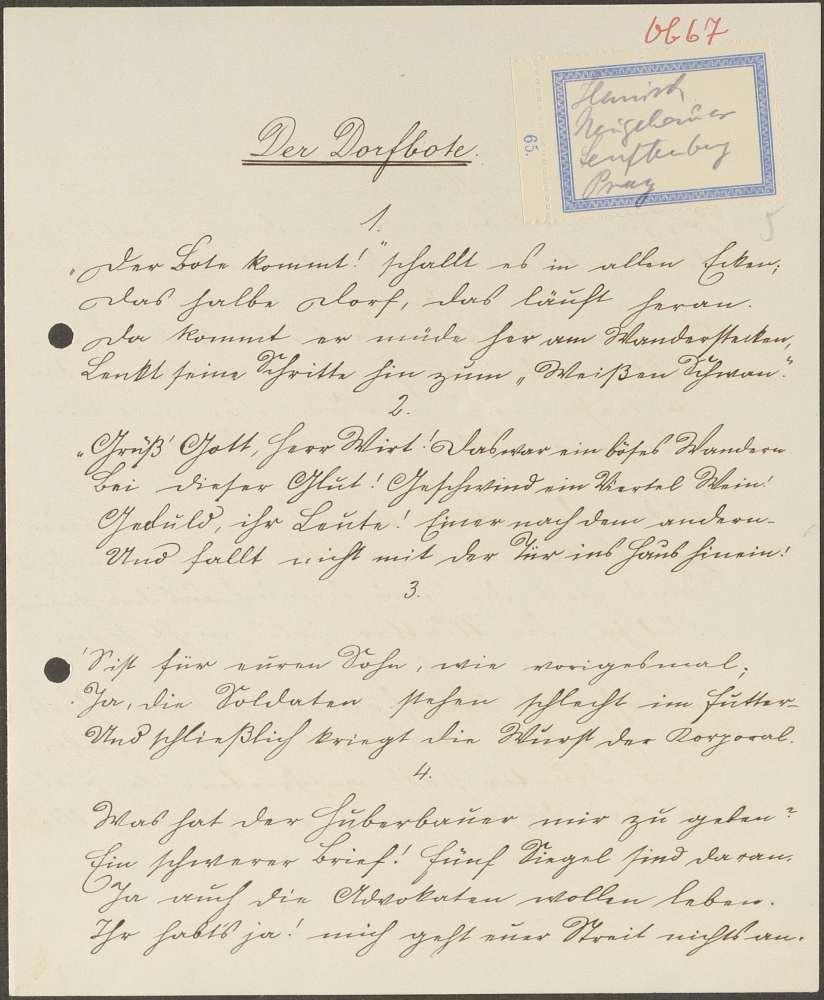 6667
65.
Neugebauer
Senftenberg
Prag
5
Der Dorfbote.
1.
"Der Bote kommt!" schallt es in allen Ecken;
Das halbe Dorf, das läuft heran.
Da kommt er müde her am Wanderstecken,
Lenkt seine Schritte hin zum „Weißen Schwan".
2.
„Grüß' Gott, Herr Wirt! Das war ein böses Wandern
Bei dieser Glut! Geschwind ein Viertel Wein!
Geduld, ihr Leute! Einer nach dem andern-
Und fallt nicht mit der Tür ins Haus hinein!
3.
'S ist für euren Sohn, wie voriges mal;
Ja, die Soldaten stehen schlecht im Futter-
Und schließlich kriegt die Wurst der Korporal.
4.
Was hat der Huberbauer mir zu geben?
Ein schwerer Brief! Fünf Siegel sind daran.
Ja auch die Advokaten wollen leben.
Ihr habt's ja! mich geht euer Streit nichts an.